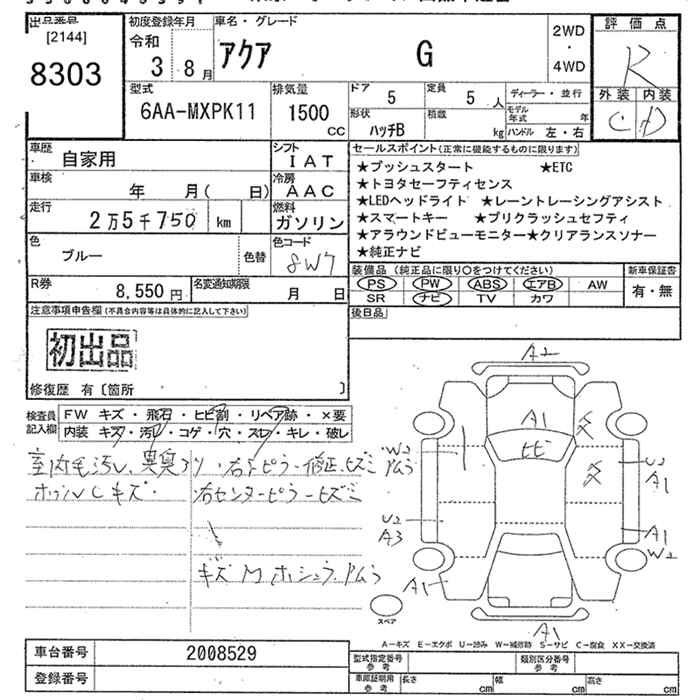 出品番号
[2144]
8303
初度登録年月
令和
3 8月
車名・グレード
アクア G
2WD
・
4WD
評価点
R
外装 内装
C D
型式
6AA-MXPK11
排気量
1500
CC
ドア
5
定員
5 人
ディーラー・並行
モデル
年式 年
形状
ハッチB
積載
kg
ハンドル 左・右
車歴
自家用
シフト
IAT
車検
年 月( 日)
冷房
AAC
走行
2万5千750 km
燃料
ガソリン
色
ブルー
色替
色コード
8W7
R券
8,550 円
名変通知期限
月 日
セールスポイント(正常に機能するものに限ります)
★プッシュスタート ★ETC
★トヨタセーフティセンス
★LEDヘッドライト ★レーントレーシングアシスト
★スマートキー ★プリクラッシュセフティ
★アラウンドビューモニター★クリアランスソナー
★純正ナビ
装備品 (純正品に限り○をつけてください)
新車保証書
PS PW ABS エアB AW
有・無
SR ナビ TV カワ
後日品
注意事項申告欄(不具合内容等は具体的に記入して下さい)
初出品
修復歴 有〔箇所 〕
検査員
記入欄
FW キズ・飛石・ヒビ割・リペア跡・×要
内装 キズ・汚れ・コゲ・穴・スレ・キレ・破レ
室内毛汚レ、異臭アリ
・右Fピラー修正、ヒズミ
ホイルCキズ・
・右センターピラーヒズミ
A2
A1
ヒビ
W2
U2
A1
A1
W2
U2
A3
A1
A1
スペア
A－キズ E－エクボ U－凹み W－補修跡 S－サビ C－腐食 XX－交換済
車台番号
2008529
登録番号
型式指定番号
参考
類別区分番号
参考
車庫証明用
参考
長さ cm
幅 cm
高さ cm